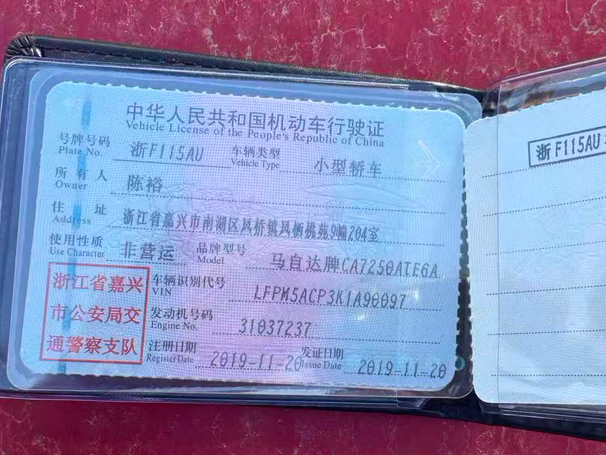 中华人民共和国机动车行驶证
Vehicle License of the People's Republic of China
号牌号码 浙F115AU 车辆类型 小型轿车
Plate No. Vehicle Type
所有人 陈裕
Owner
住址 浙江省嘉兴市南湖区凤桥镇凤栖桃苑9幢204室
Address
使用性质 非营运 品牌型号 马自达牌CA7250ATE6A
Use Character Model
浙江省嘉兴
市公安局交
通警察支队
车辆识别代号 LFPM5ACP3K1A90097
VIN
发动机号码 31037237
Engine No.
注册日期 2019-11-20 发证日期 2019-11-20
Register Date Issue Date
浙F115AU